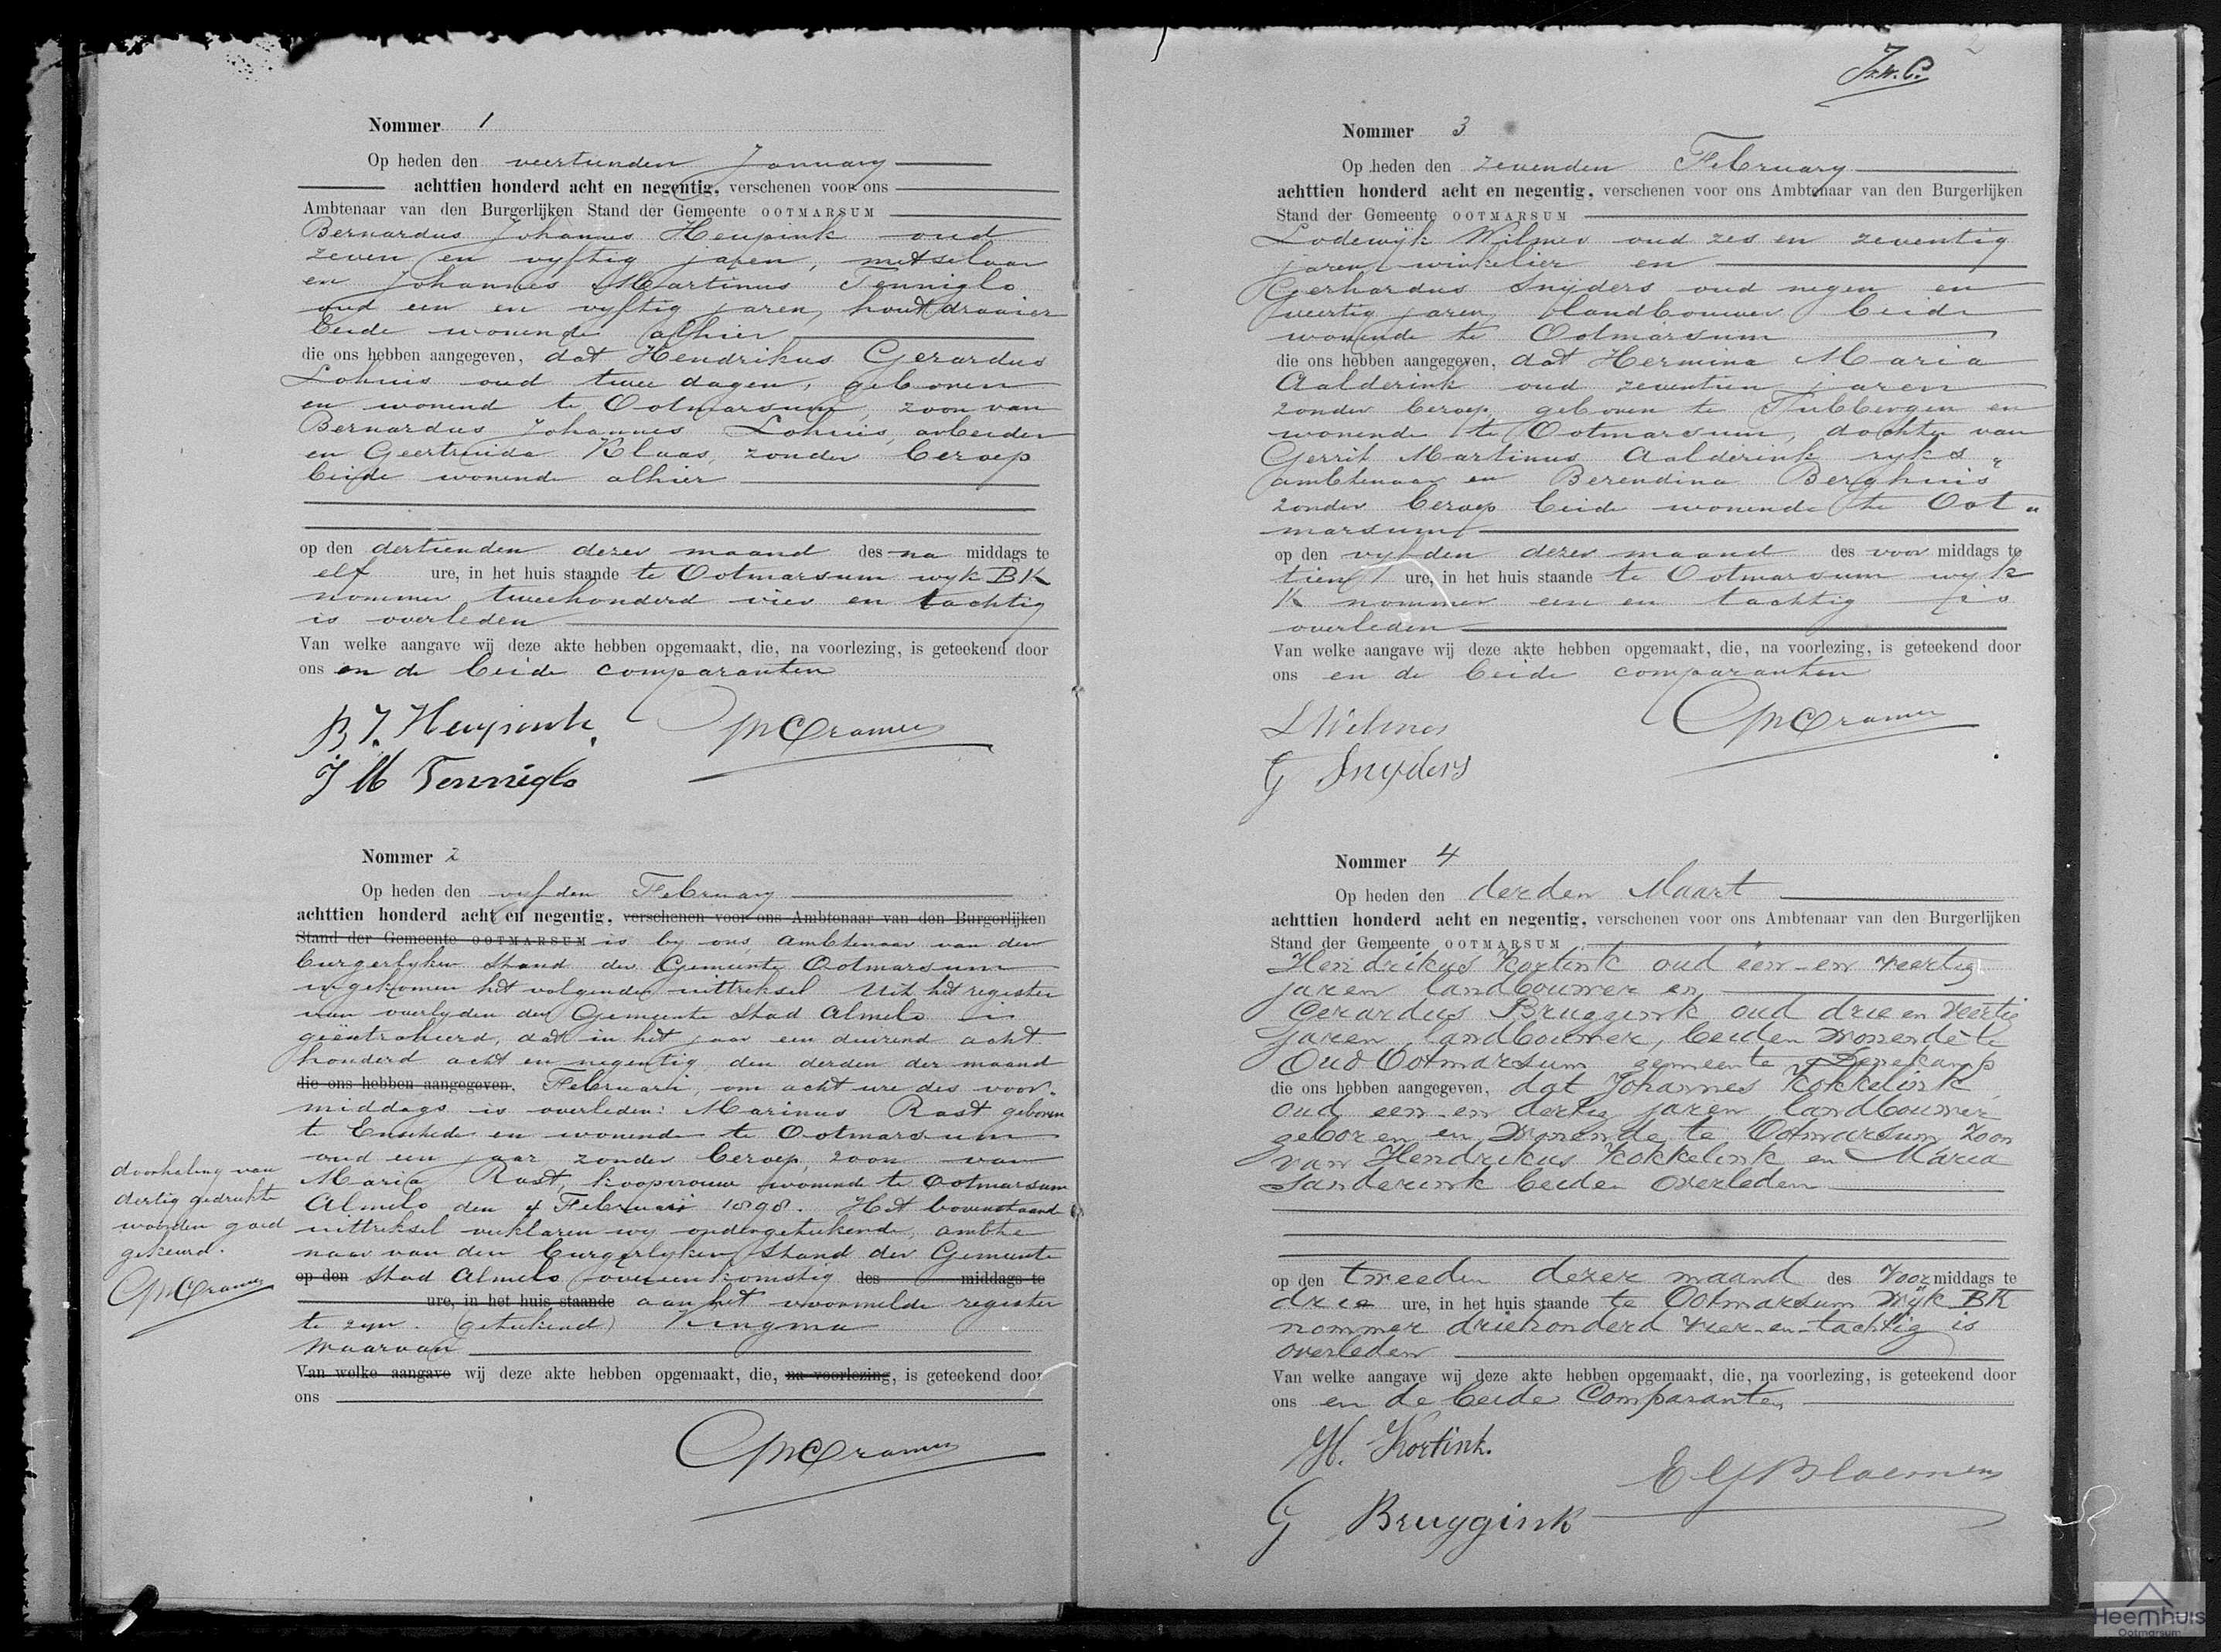 Nommer 1
Op heden den veertienden January
achttien honderd acht en negentig, verschenen voor ons
Ambtenaar van den Burgerlijken Stand der Gemeente OOTMARSUM
Bernardus Johannes Heupink oud
zeven en vyftig jaren, metselaar
en Johannes Martinus Tenniglo
oud een en vyftig jaren, houtdraaier
beide wonende alhier
die ons hebben aangegeven, dat Hendrikus Gerardus
Lohuis oud twee dagen, geboren
en wonend te Ootmarsum, zoon van
Bernardus Johannes Lohuis, arbeider
en Geertruida Klaas, zonder beroep
beide wonende alhier
op den dertienden dezer maand des na middags te
elf ure, in het huis staande te Ootmarsum wyk BK
nommer tweehonderd vier en tachtig
is overleden
Van welke aangave wij deze akte hebben opgemaakt, die, na voorlezing, is geteekend door
ons en de beide comparanten
B J. Heupink. Cramer
J M Tenniglo
Nommer 2
Op heden den vyfden February
achttien honderd acht en negentig, verschenen voor ons Ambtenaar van den Burgerlijken
Stand der Gemeente OOTMARSUM is by ons ambtenaar van den
burgerlyken stand der Gemeente Ootmarsum
ingekomen het volgende uittreksel Uit het register
van overlyden der Gemeente Stad Almelo is
geëxtraheerd, dat in het jaar een duizend acht
honderd acht en negentig den derden der maand
die ons hebben aangegeven, Februari, om acht ure des voor„
middags is overleden: Marinus Rast geboren
te Enschede en wonende te Ootmarsum
oud een jaar zonder beroep, zoon van
Maria Rast, koopvrouw wonend te Ootmarsum
Almelo den 4 Februari 1898. Het bovenstaande
uittreksel verklaren wy ondergeteekende, ambte
naar van den burgerlyken stand der Gemeente
op den Stad Almelo overeenkomstig des middags te
ure, in het huis staande aan het voormelde register
te zyn. (geteekend) Kingma
Waarvan
Van welke aangave wij deze akte hebben opgemaakt, die, na voorlezing, is geteekend door
ons
Cramer
doorhaling van
dertig gedrukte
woorden goed
gekeurd.
Cramer
2
Nommer 3
Op heden den zevenden February
achttien honderd acht en negentig, verschenen voor ons Ambtenaar van den Burgerlijken
Stand der Gemeente OOTMARSUM
Lodewyk Wilmes oud zes en zeventig
jaren winkelier en
Gerhardus Snyders oud negen en
veertig jaren, landbouwer beide
wonende te Ootmarsum
die ons hebben aangegeven, dat Hermina Maria
Aalderink oud zeventien jaren
zonder beroep, geboren te Tubbergen en
wonende te Ootmarsum, dochter van
Gerrit Martinus Aalderink ryks„
ambtenaar en Berendina Berghuis
zonder beroep beide wonende te Oot„
marsum
op den vyfden dezer maand des voor middags te
tien ure, in het huis staande te Ootmarsum wyk
K nommer een en tachtig is
overleden
Van welke aangave wij deze akte hebben opgemaakt, die, na voorlezing, is geteekend door
ons en de beide comparanten
L Wilmes Cramer
G Snyders
Nommer 4
Op heden den derden Maart
achttien honderd acht en negentig, verschenen voor ons Ambtenaar van den Burgerlijken
Stand der Gemeente OOTMARSUM
Hendrikus Kortink oud één-en veertig
jaren landbouwer en
Gerardus Bruggink oud drie en veertig
jaren, landbouwer, beiden wonende te
Oud Ootmarsum gemeente Denekamp
die ons hebben aangegeven, dat Johannes Kokkelink
oud een-en dertig jaren landbouwer
geboren en wonende te Ootmarsum zoon
van Hendrikus Kokkelink en Maria
Sanderink beiden overleden
op den tweeden dezer maand des voor middags te
drie ure, in het huis staande te Ootmarsum Wijk BK
nommer driehonderd vier-en-tachtig is
overleden
Van welke aangave wij deze akte hebben opgemaakt, die, na voorlezing, is geteekend door
ons en de beide Comparanten
H. Kortink.
Bloemen
G Bruggink
Heemhuis
Ootmarsum